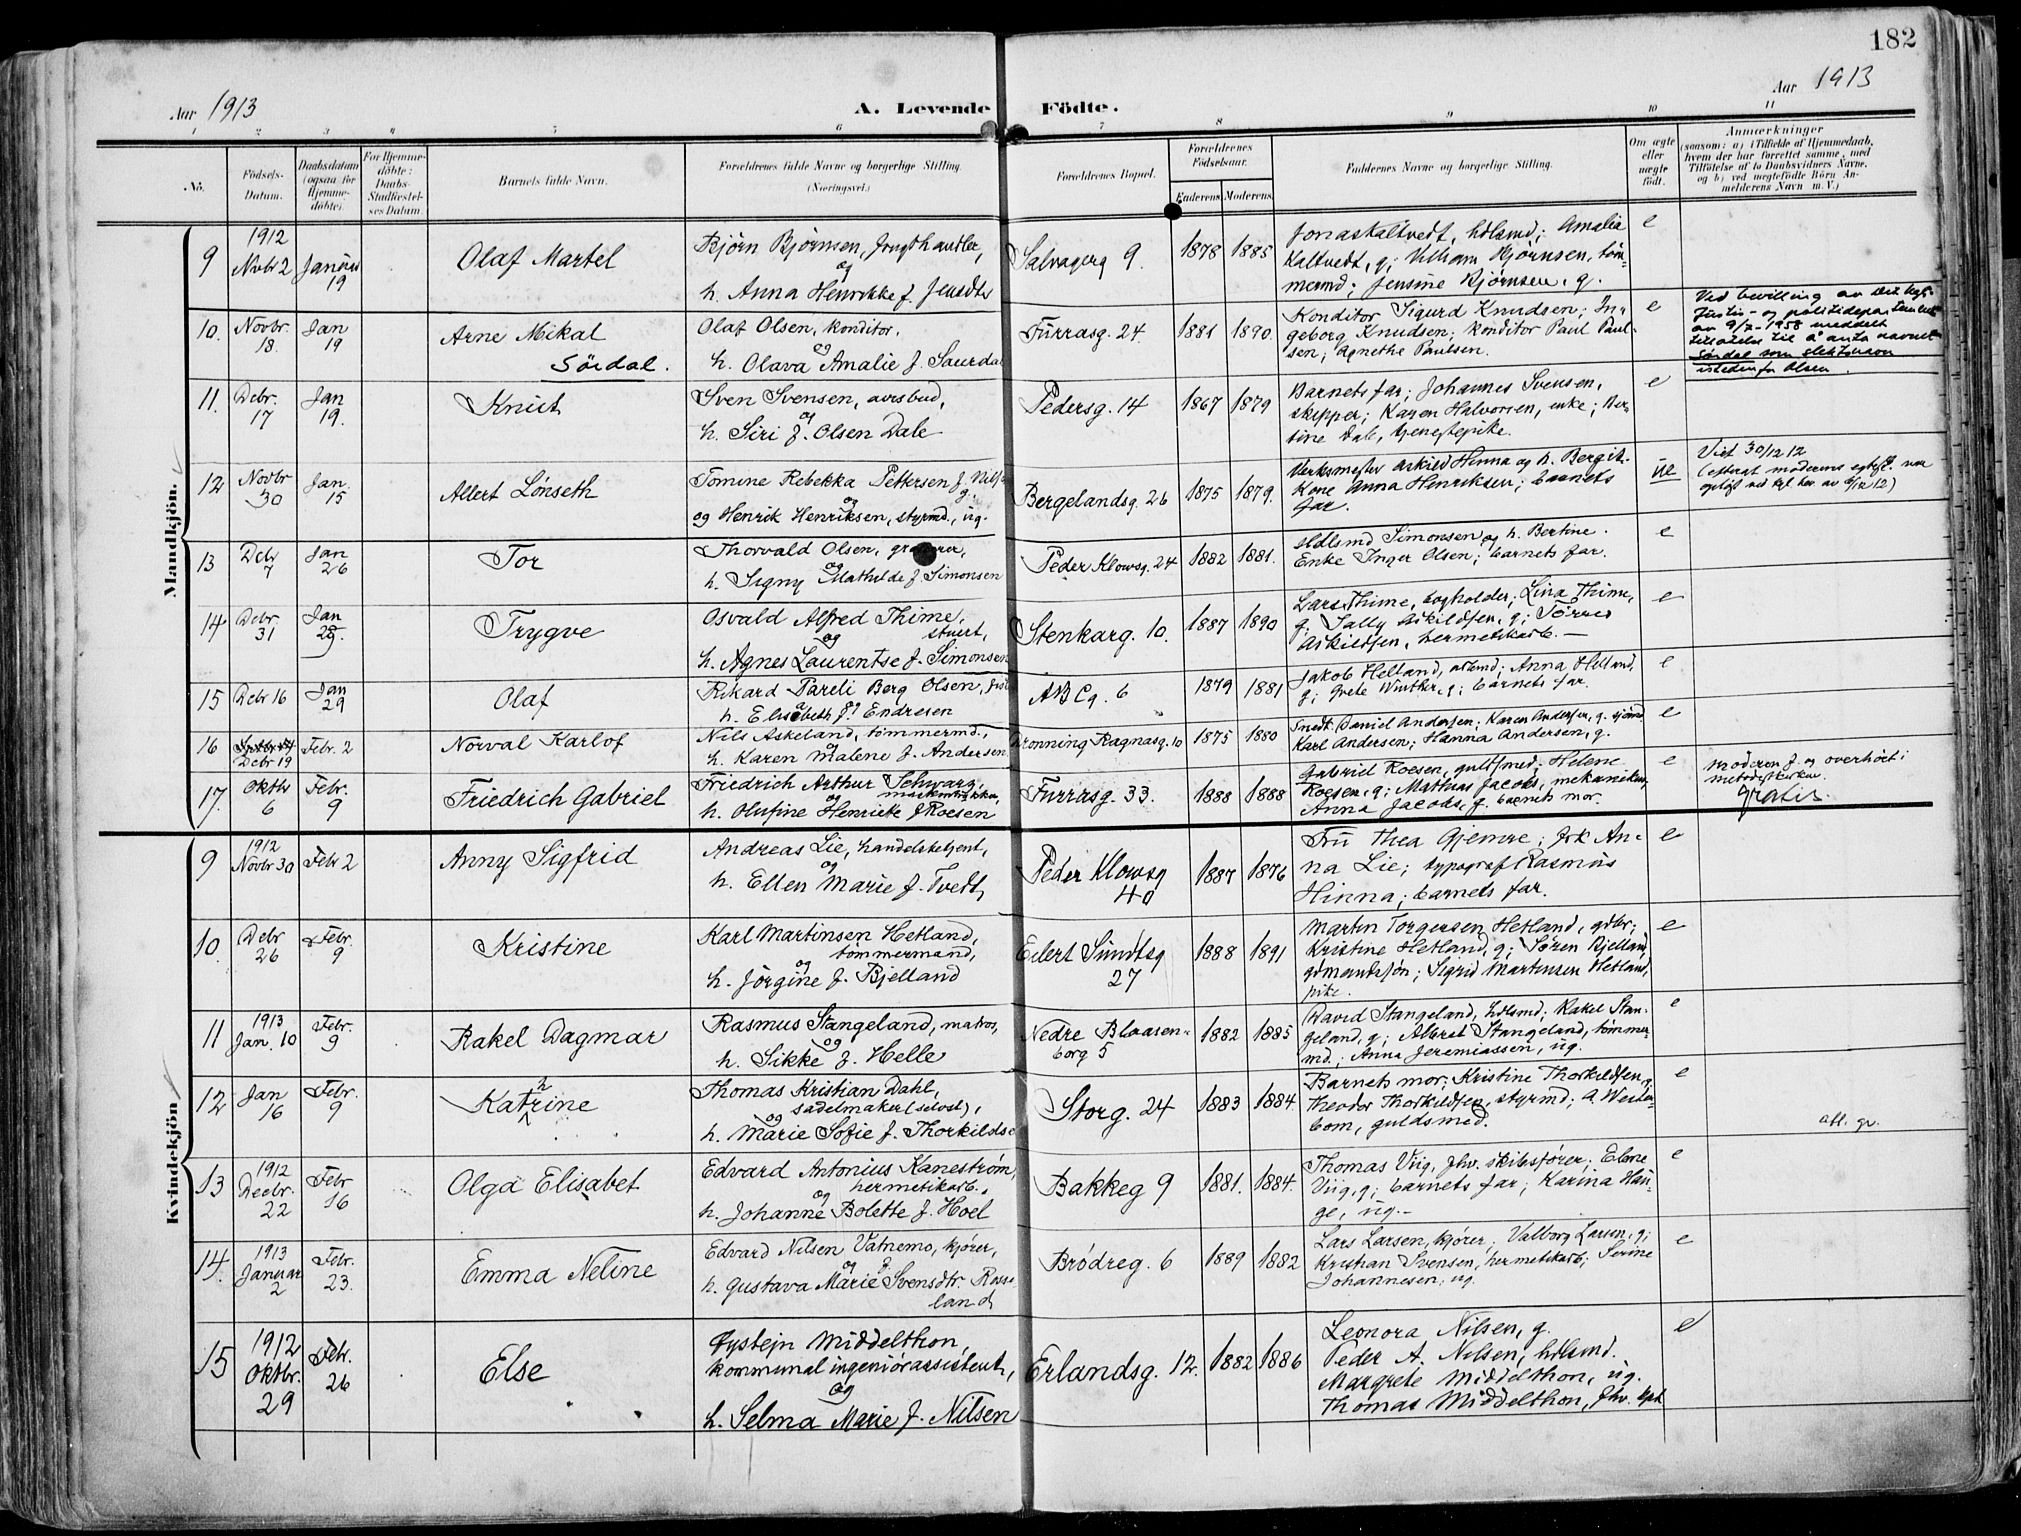 182
Aar 1913
A. Levende Födte.
Aar 1913
1 2 3 4 5 6 7 8 9 10 11
No.
Födsels-Datum.
Daabsdatum (ogsaa for Hjemme-döbte).
For Hjemme-döbte: Daabs-Stadfæstel-ses Datum
Barnets fulde Navn.
Forældrenes fulde Navne og borgerlige Stilling. (Næringsvei.)
Forældrenes Bopæl.
Forældrenes Födselsaar.
Faderens Moderens
Faddernes Navne og borgerlige Stilling.
Om ægte eller uægte födt.
Anmærkninger
(saasom: a) i Tilfælde af Hjemmedaab, hvem der har forrettet samme, med Tilföielse af to Daabsvidners Navne, og b) ved uægtefödte Börn An-melderens Navn m. V.)
Mandkjön.
9 1912 Novbr 2 Januar 19 Olaf Martel
Bjørn Bjørnsen, frugthandler,
og
h. Anna Henrikke f. Jensdtr
Salvagerg 9. 1878 1885
Jonas Kaltvedt, hdlsmd; Amalia
Kaltvedt, g; Vilham Bjørnsen, töm-
mermd; Jensine Bjørnsen, g. e
10. Novbr. 18. Jan 19 Arne Mikal
Sördal.
Olaf Olsen, konditor,
og
h. Olava Amalie f. Saurdal
Furrasg. 24 1881 1890.
Konditor Sigurd Knudsen; In-
geborg Knudsen; konditor Paul Paul-
sen; Agnethe Paulsen. e
Ved bevilling av Det kgl.
Justis- og politidepartement
av 9/7-1958 meddelt
tillatelse til å anta navnet
Sördal som slektsnavn
istedenfor Olsen.
11. Debr. 17 Jan 19. Knut
Sven Svensen, avisbud,
og
h. Siri f. Olsen Dale
Pedersg. 14 1867 1879
Barnets far; Johannes Svensen,
skipper; Karen Halvorsen, enke; Ber-
tine Dale, tjenestepike. e
12 Novbr 30 Jan. 15 Allert Lönseth
Tomine Rebekka Pettersen f. g.
og
og Henrik Henriksen, styrmd., ug.
Bergelandsg. 26 1875 1879.
Verksmester Askild Hinna og h. Bergit.
Kone Anna Henriksen; barnets
far. ue
Viet 30/12 12
13 Debr 7 Jan 26 Tor
Thorvald Olsen,
og
h. Signy Mathilde f. Simonsen
Peder Klowsg. 24 1882 1881.
Hdlsmd Simonsen og h. Bertine.
Enke Inger Olsen; barnets far. e
14 Debr. 31 Jan 29. Trygve
Osvald Alfred Thime,
og stuert,
h. Agnes Laurentse f. Simonsen
Stenkarg. 10. 1887 1890
Lars Thime, bogholder; Lina Thime,
g; Sally Askildsen, g; Törres
Askildsen, hermetikarb. e
15 Debr 16 Jan 29 Olaf
Rikard Pareli Berg Olsen,
h. Elisabeth f. Endresen
A B Cg. 6 1879 1881
Jakob Helland, arbmd; Anna Helland,
g; Grete Winther, g; barnets far. e
16 Debr 19 Febr. 2 Norval Karlof
Nils Askeland, tömmermd.,
og
h. Karen Malene f. Andersen
Dronning Ragnasg. 10 1875 1880
Snedk. Daniel Andersen; Karen Andersen, g. sjömd
Karl Andersen; Hanna Andersen, g. e
17. Oktbr 6 Febr. 9 Friedrich Gabriel
Friedrich Arthur Schwarz,
og
h. Olufine Henriette f. Roesen
Furrasg. 33. 1888 1888
Gabriel Roesen, guldsmed; Helene
Roesen, g; Mathias Jacobs, mekaniker;
Anna Jacobs, g. barnets mor. e
Moderen f. og overhørt i
metodistkirken.
gratis.
Kvindekjön
9 1912 Novbr 30 Febr 2 Anny Sigfrid
Andreas Lie, handelsbetjent,
og
h. Ellen Marie f. Tvedt,
Peder Klowsg 40 1887 1876
Fru Thea Gjemre; frk An-
na Lie; typograf Rasmus
Hinna; barnets far. e
10. Debr 26 Febr. 9 Kristine
Karl Martinsen Hetland,
tömmermand,
og
h. Jörgine f. Bjelland
Eilert Sundtsg 27 1888 1891
Martin Torgersen Hetland, gdbr;
Kristine Hetland, g; Søren Bjelland,
gdmandssjön; Sigrid Martinsen Hetland,
pike. e
11 1913 Jan. 10 Febr. 9 Rakel Dagmar
Rasmus Stangeland, matros,
og
h. Sikke f. Helle
Nedre Blaasen-
borg 5 1882 1885
David Stangeland, hdlsmd; Rakel Stan-
geland, g; Albret Stangeland, tömmer-
md; Anna Jeremiassen, ug. e
12 Jan 16 Febr. 9 Kathrine
Thomas Kristian Dahl,
sadelmaker (selvst),
og
h. Marie Sofie f. Thorkildsen
Storg. 24 1883 1884
Barnets mor; Kristine Thorkildsen, g;
Theodor Thorkildsen, styrmd; A. Wester-
bom, guldsmed. e
att. gr.
13 1912 Decbr. 22 Febr 16 Olga Elisabet
Edvard Antonius Kanestrøm,
hermetikarb.,
og
h. Johanne Bolette f. Hoel
Bakkeg 9 1881. 1884.
Thomas Viig, fhv. skibsfører; Elene
Viig, g; barnets far; Karina Hau-
ge, ug. e
14. 1913 Januar 2 Febr. 23. Emma Neline
Edvard Nilsen Vatnemo, kjører,
og
h. Gustava Marie Svensdtr. Rosse-
land
Brödreg. 6 1889 1882
Lars Larsen, kjører; Valborg Larsen, g;
Kristian Svensen, hermetikarb; Serine
Johannesen, ug. e
15 1912 Oktbr. 29 Febr. 26 Else
Øystejn Middelthon,
kommunal ingeniörassistent,
og
h. Selma Marie f. Nilsen
Erlandsg. 12. 1882 1886
Leonora Nilsen, g.
Peder A. Nilsen, hdlsmd.
Margrete Middelthon, ug.
Thomas Middelthon, fhv. kpt e